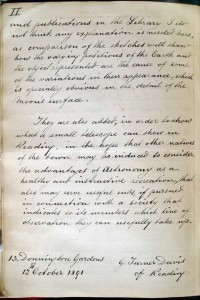 II
and publications in the Library I do
not think any explanation is needed here,
as comparison of the sketches will show
how the varying positions of the Earth and
the object represented are the cause of some
of the variations in their appearance, which
is specially obvious in the detail of the
Moon's surface.
They are also added, in order to show
what a small telescope can show in
Reading, in the hope that other natives
of the town may be induced to consider
the advantages of Astronomy as a
healthy and instructive recreation, that
also may serve useful ends if pursued
in connection with a society that
indicates to its members which line of
observation they can usefully take up.
13. Donnington Gardens
12th October 1891
G. Turner Davis
of Reading